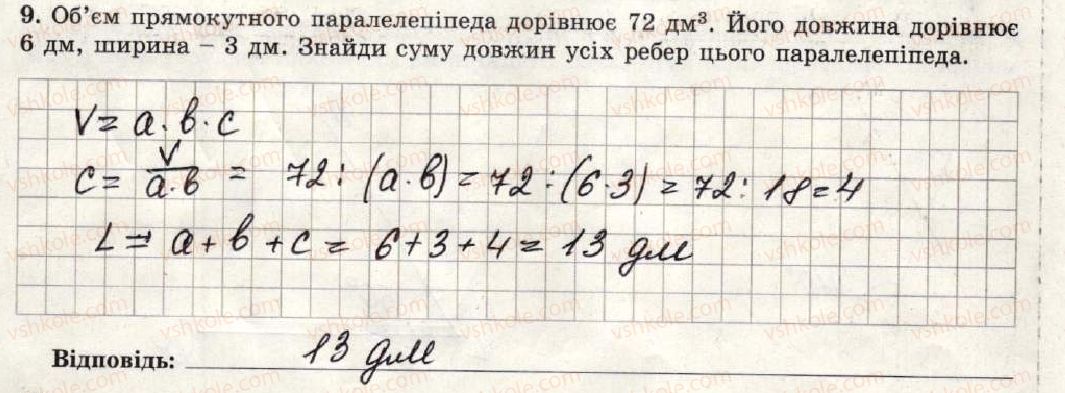 9. Об'єм прямокутного паралелепіпеда дорівнює 72 дм³. Його довжина дорівнює
6 дм, ширина – 3 дм. Знайди суму довжин усіх ребер цього паралелепіпеда.
V = a · b · c
c = V/(a·b) = 72 : (a·b) = 72 : (6·3) = 72 : 18 = 4
L = a + b + c = 6 + 3 + 4 = 13 дм
Відповідь: 13 дм